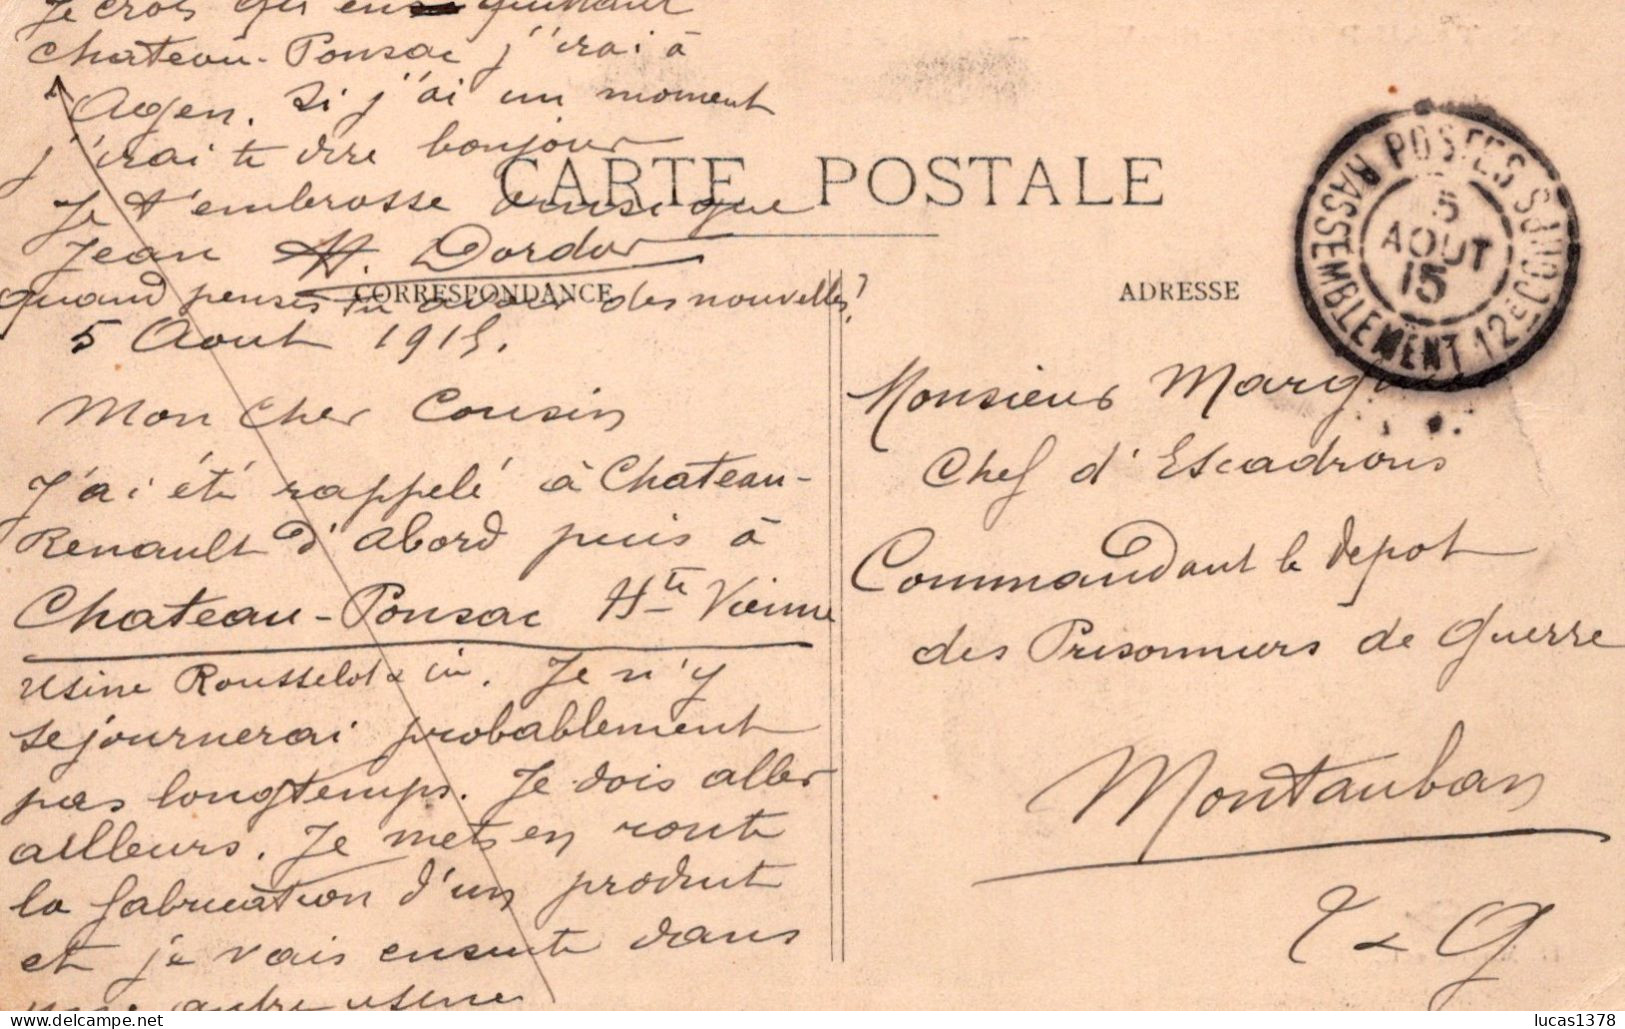 Je crois qu'en quittant
Chateau-Ponsac j'irai à
Agen. Si j'ai un moment
j'irai te dire bonjour
Je t'embrasse ainsi que
Jean H. Dordor
quand penses tu avoir des nouvelles?
CARTE POSTALE
CORRESPONDANCE
5 Aout 1915.
Mon cher Cousin
J'ai été rappelé à Chateau-
Renault d'Abord puis à
Chateau-Ponsac Hte Vienne
Usine Rousselot & Cie. Je n'y
sejournerai probablement
pas longtemps. Je dois aller
ailleurs. Je mets en route
la fabrication d'un produit
et je vais ensuite dans
une autre usine
ADRESSE
POSTES SUR RASSEMBLEMENT 12e CORPS
5
AOUT
15
Monsieur
Chef d'Escadrons
Commandant le depot
des Prisonniers de Guerre
Montauban
T & G
lucas1378